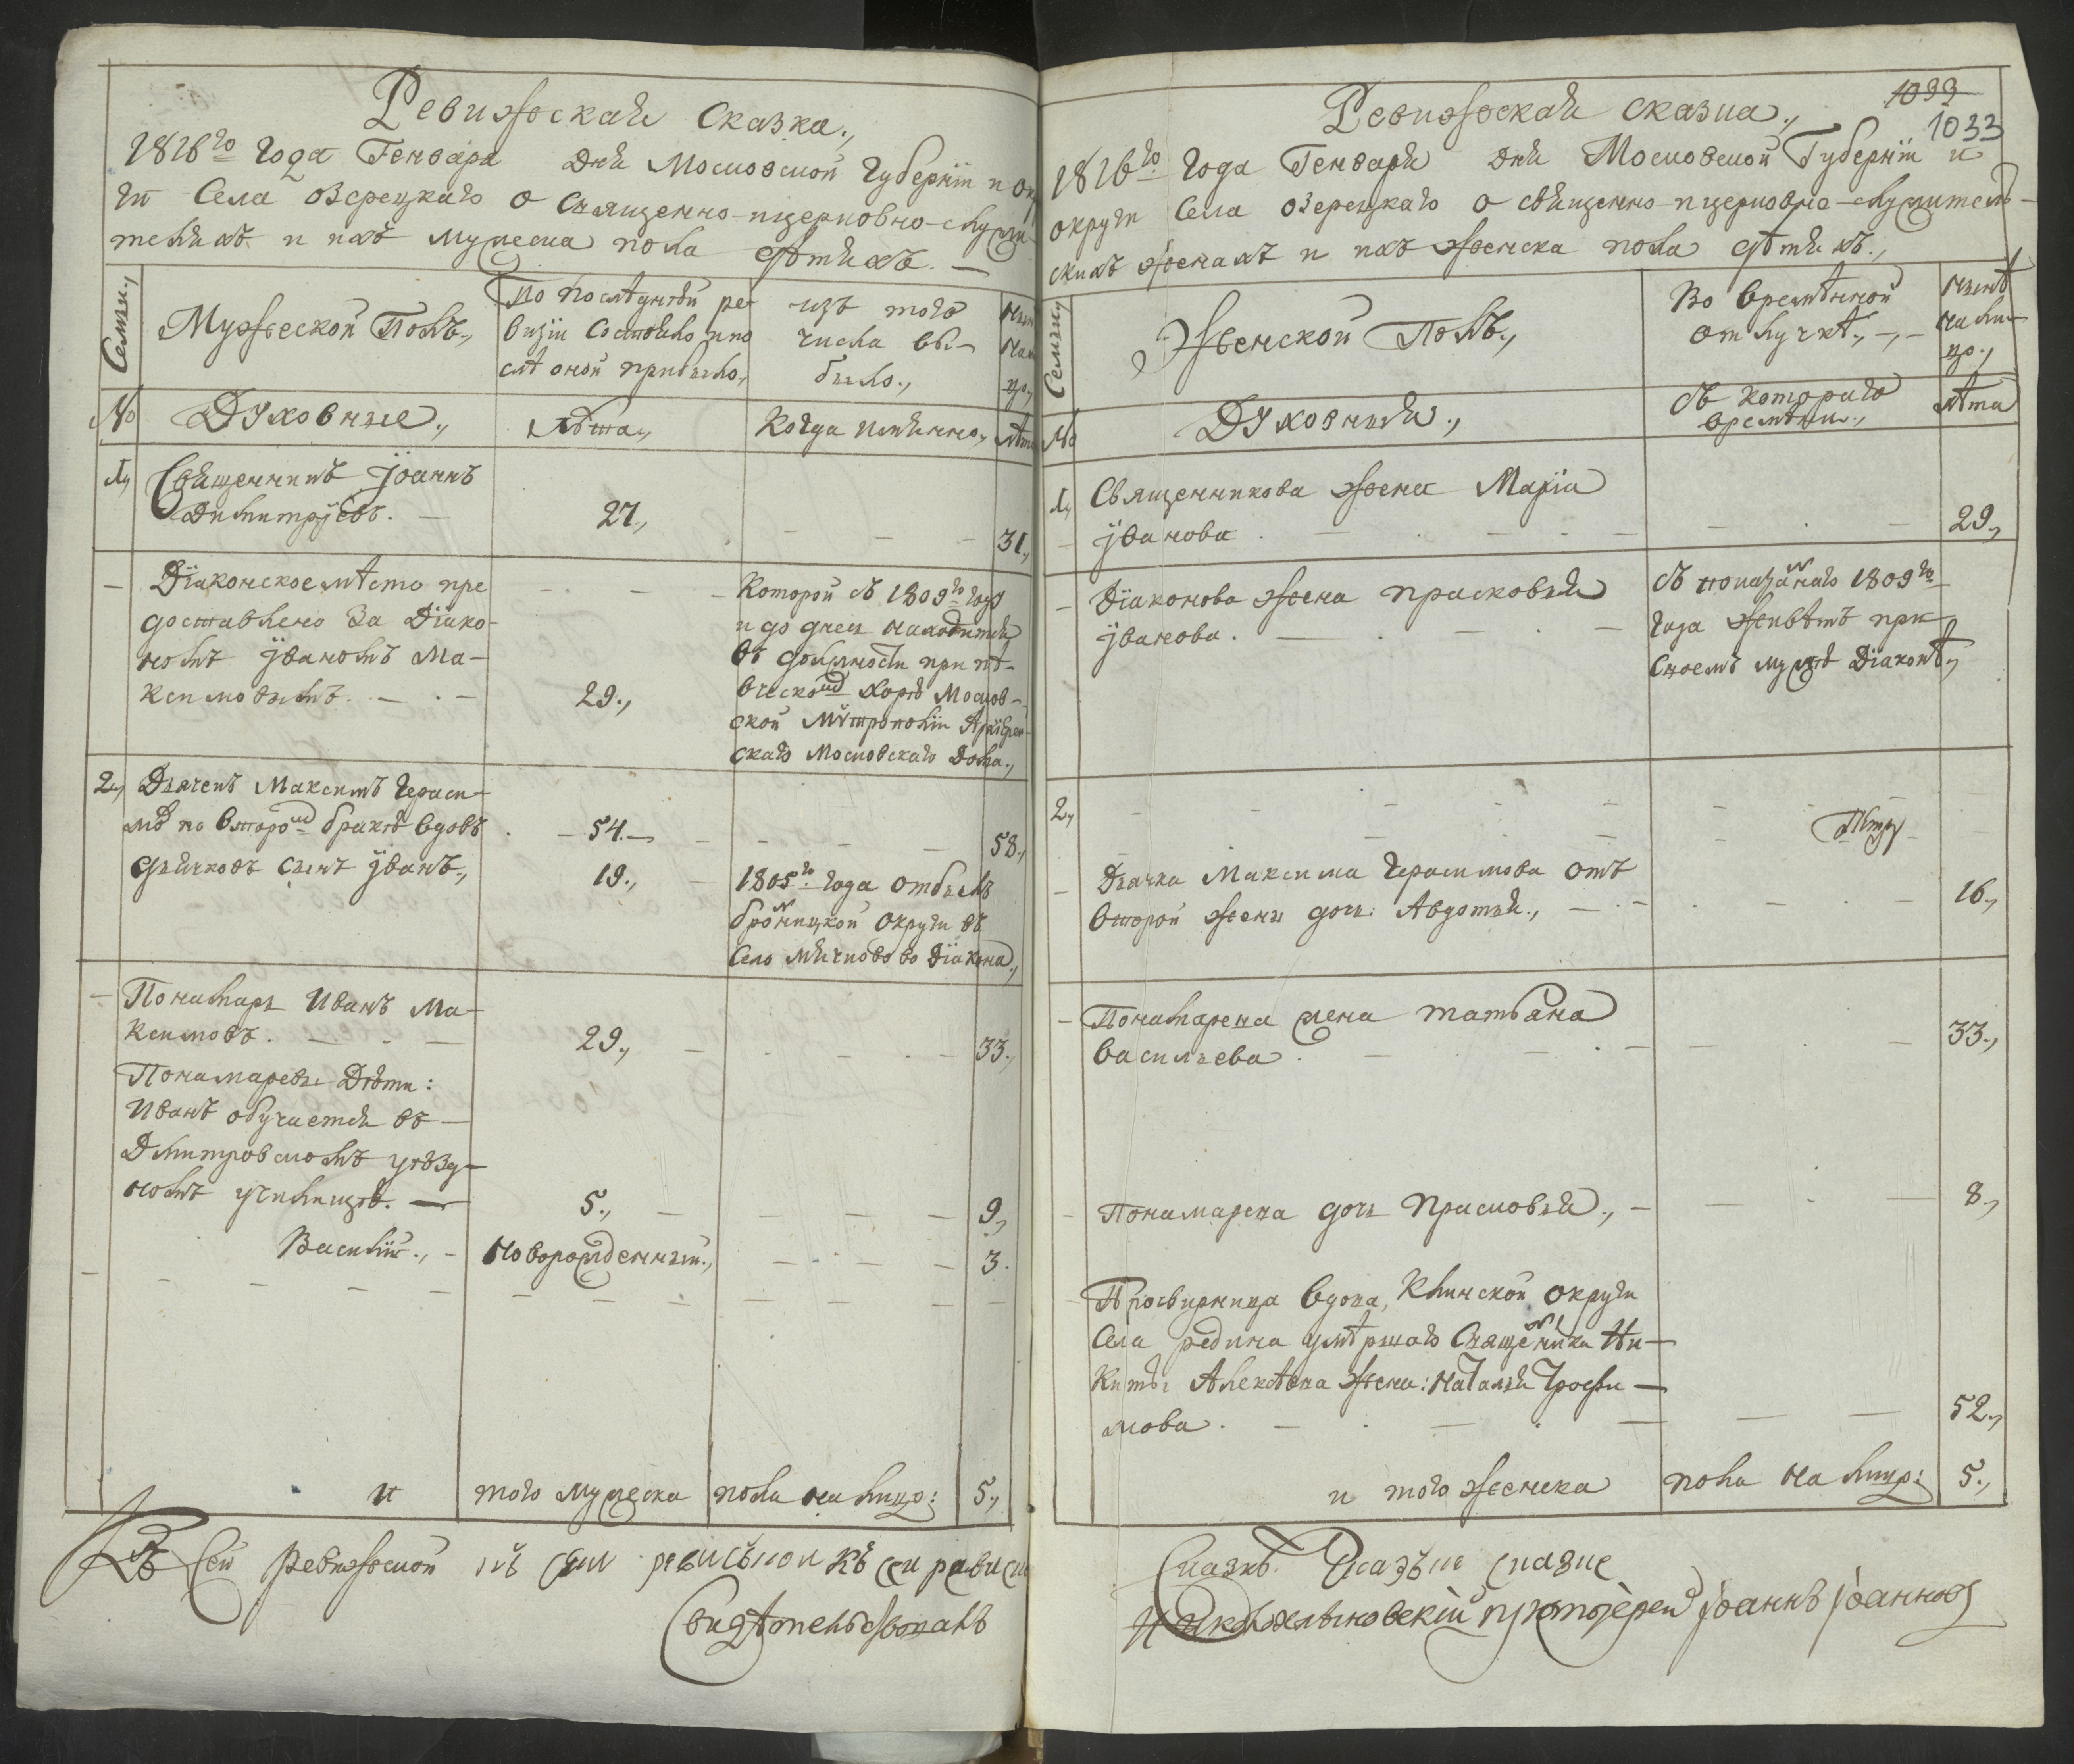 Ревижская Сказка.,
1816го Года Генваря дня Московской Губернiи и ок
ги Села Озерецкаго о Священно-ицерковно-служи-
теляхъ и ихъ мужеска пола дѣтяхъ. —
Семьи.,
Мужеской Полъ.,
По последней ре-
визiи Состояло и по
слѣ оной прибыло,
изъ того
числа вы-
было.,
№
Духовные.,
Лѣта.,
Когда имянно.,
Лѣта
1,
Священникъ Iоаннъ
Димитрiевъ. —
27.,
31.,
— Дiаконское мѣсто пре
доставлено За Дiако-
номъ Iваномъ Ма-
ксимовымъ. — . —
29.,
Которой съ 1809го году
и до днесь находится
въ должности при пѣ-
вческой Хорѣ Москов-
ской Митрополiи Архiерей-
скаго Московскаго Дома.,
2., Дьячекъ Максимъ Гераси-
мъ по второй бракѣ вдовъ
— 54. —
58.,
дьячковъ сынъ Iванъ.,
19.,
1805го Года отбылъ
бронницкой Округи въ
Село Мячково во Дiакона.,
— Понамарь Иванъ Ма-
ксимовъ. —
29.,
33.,
Понамаревы Дѣти:
Иванъ обучается въ —
Дмитровскомъ уѣзд-
номъ училищѣ. —
5.,
9.,
Василiй., —
Новорожденный.,
3.
и
того мужеска
пола на лицо:
5.,
Въ Сей Ревижской
Свидѣтельствовалъ
1033
1033
Ревижская Сказка.,
1816го Года Генваря дня Московской Губернiи и
округи Села Озерецкаго о священно-ицерковно-служитель-
скихъ женахъ и ихъ женска пола дѣтяхъ.,
Семьи.,
Женской Полъ.,
Во временной
отлучкѣ., —, —
нынѣ
на ли-
цо.,
№
Духовныя.,
Съ котораго
времени.,
Лѣта
1,
Священникова жена Марiя
Iванова . —
29.,
— Дiаконова жена Прасковья
Iванова. —
съ показаннаго 1809го
Года живѣтъ при
Своемъ мужѣ Дiаконѣ.,
2,
— Дьячка Максима Герасимова отъ
второй жены дочь: Авдотья., —
16.,
— Понамарева жена Татьяна
Васильева . —
33.,
— Понамарева дочь Прасковья., —
8.,
Просвирница вдова, Клинской округи
Села редина умѣршаго Священника Ни-
киты Алексѣева жена: Наталья Трофи-
мова. —
52.,
и того женска
пола на лицо:
5.,
Сказкѣ.
протоiерей Iоаннъ Iоанновъ